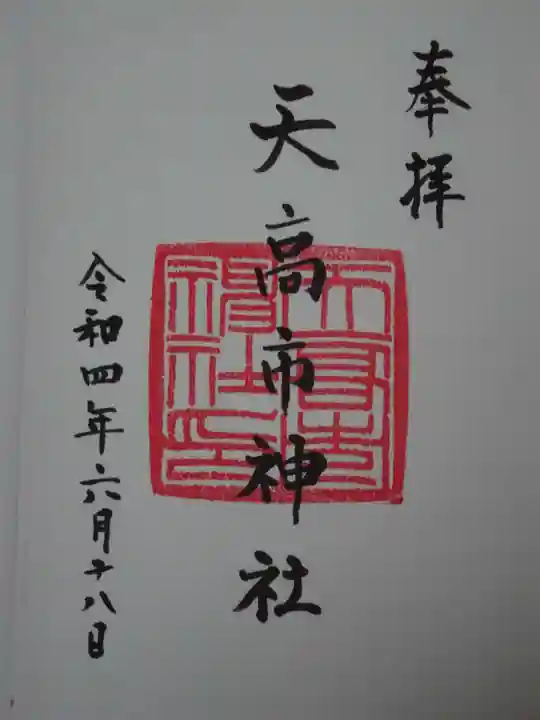 奉拝
天高市神社
令和四年六月十八日